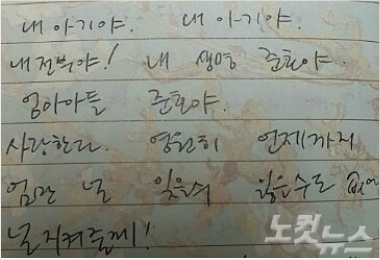 내 아기야. 내 아기야.
내 전부야! 내 생명 준호야.
엄마아들 준호야.
사랑한다. 영원히 언제까지
엄만 널 잊을수 잃을수도 없어
널 지켜줄께!
노컷뉴스